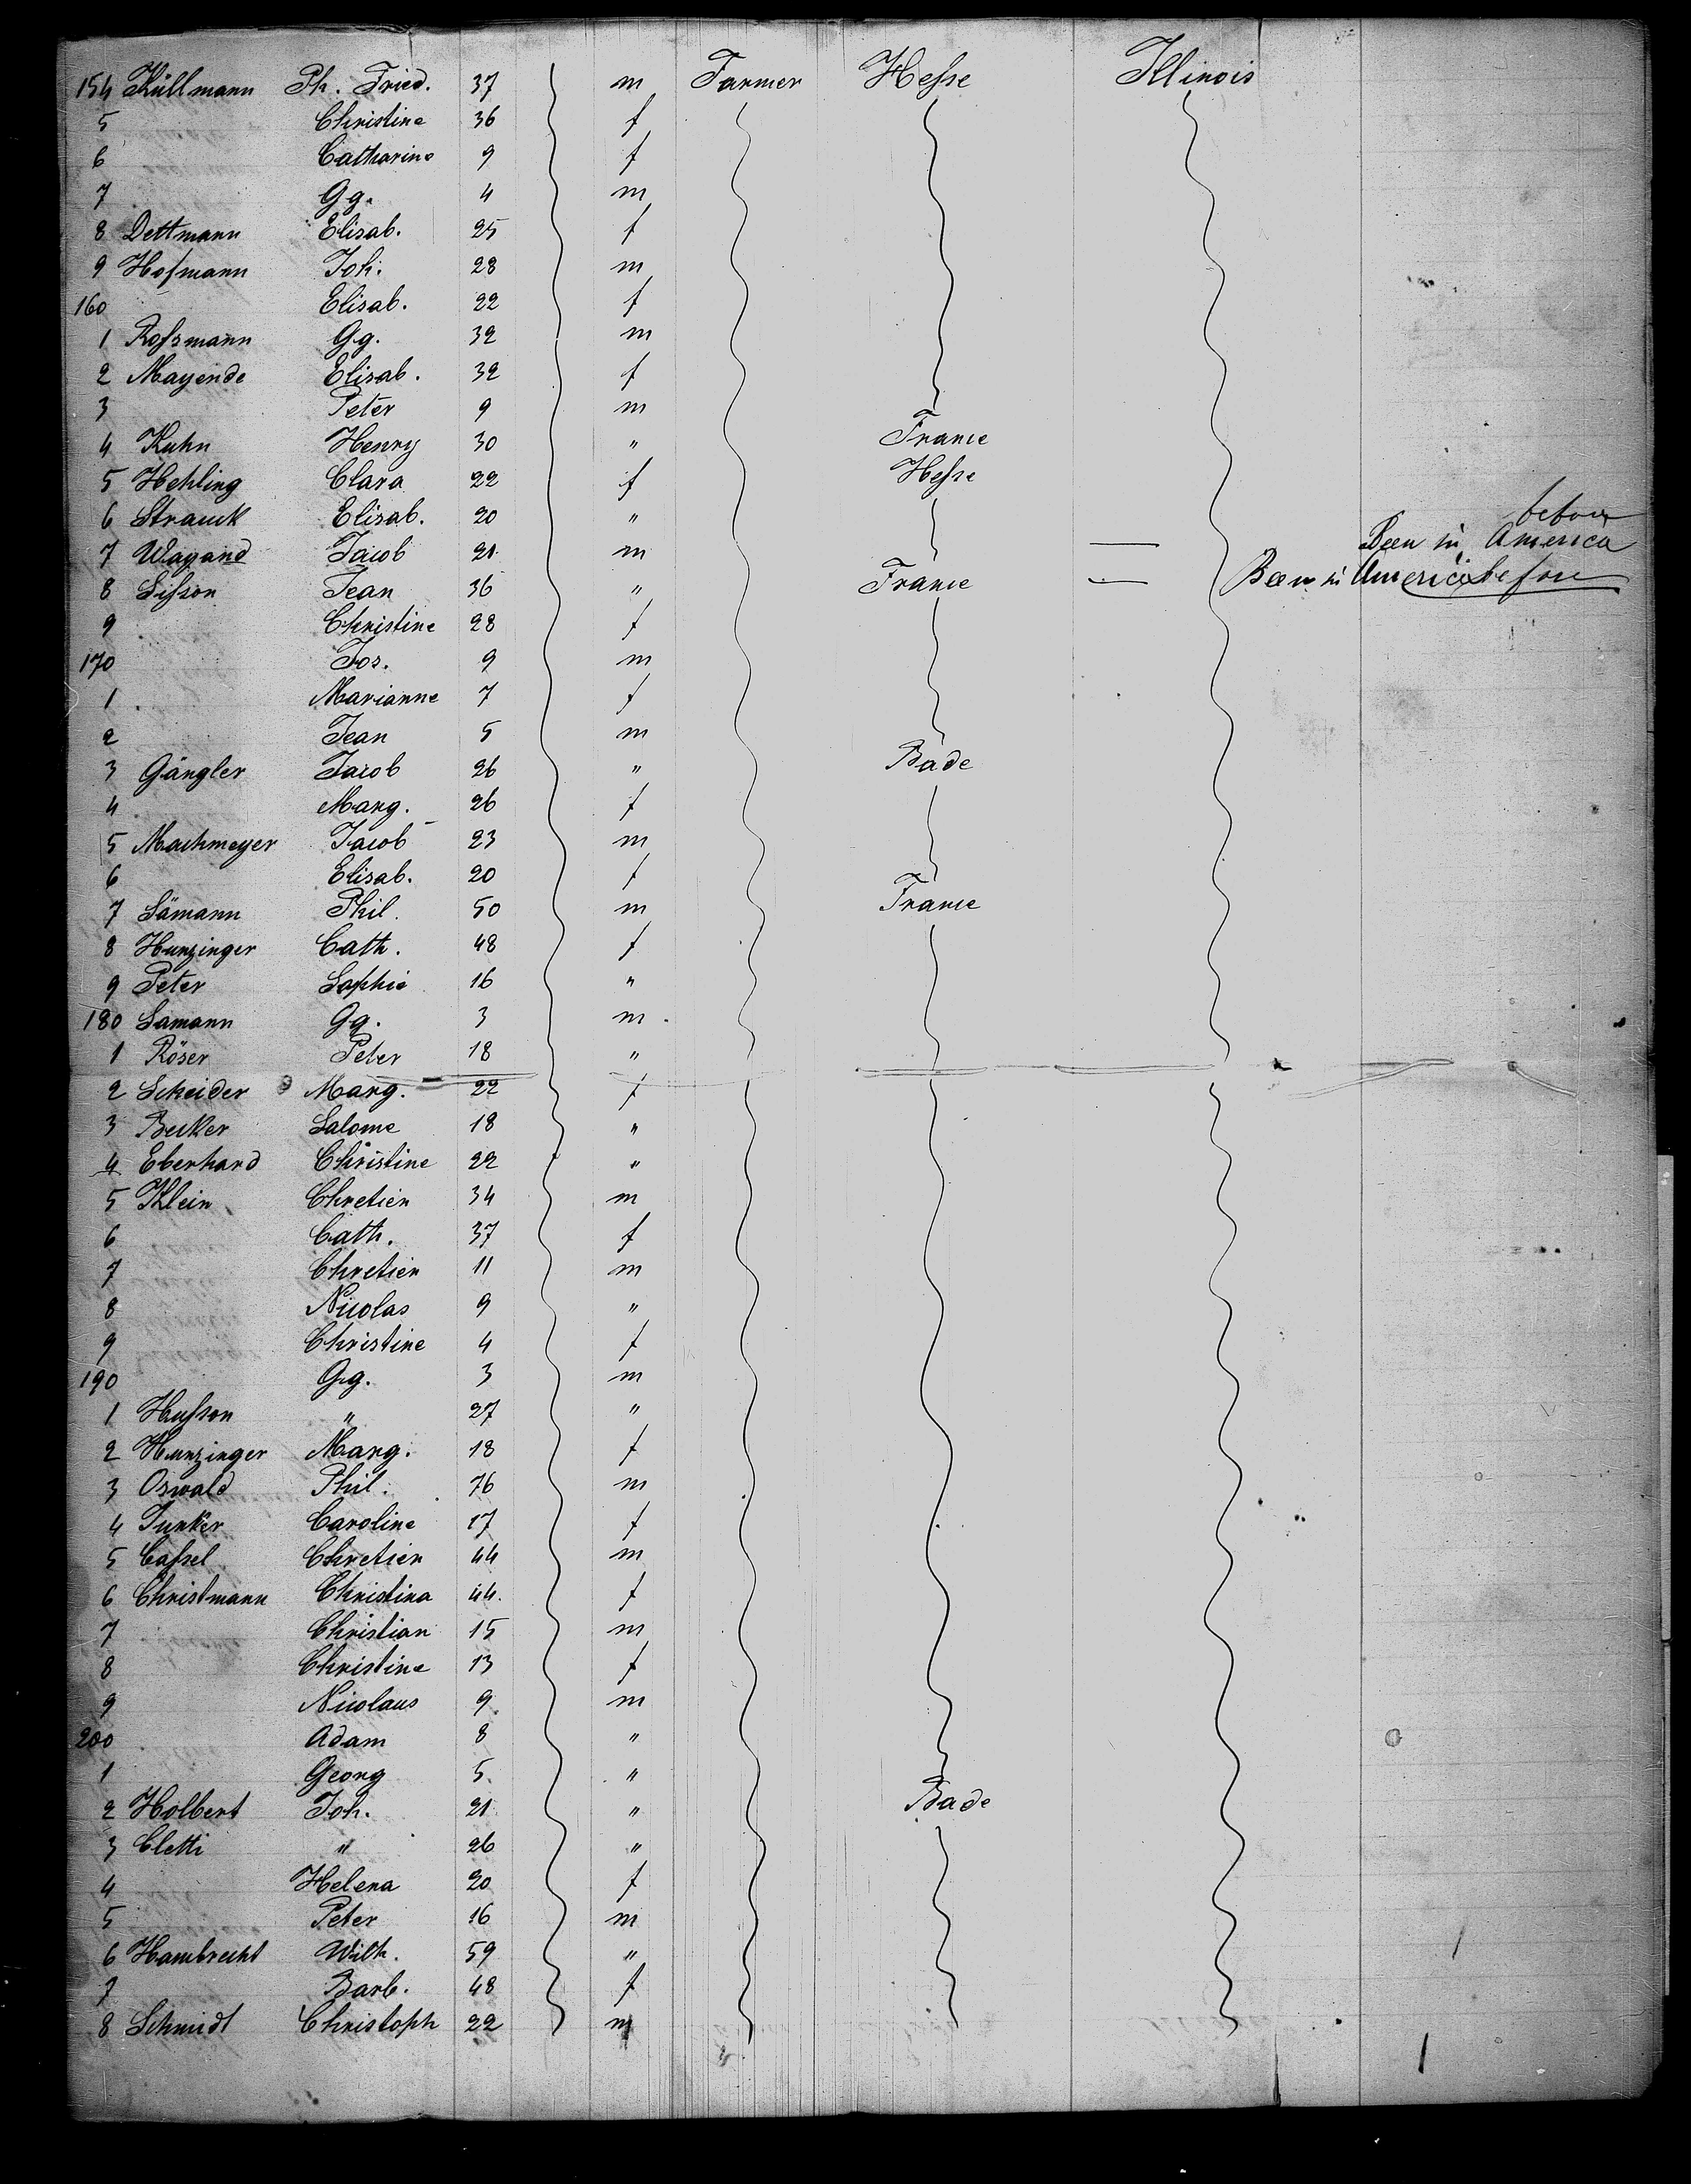 154 Küllmann Ph. Fried. 37 m Farmer Hesse Illinois
5 Christine 36 f
6 Catharine 9 f
7 Gg. 4 m
8 Dettmann Elisab. 25 f
9 Hofmann Joh. 28 m
160 Elisab. 22 f
1 Rossmann Gg. 32 m
2 Mayende Elisab. 32 f
3 Peter 9 m
4 Kuhn Henry 30 " France
5 Hehling Clara 22 f Hesse
6 Strauck Elisab. 20 "
7 Wayand Jacob 21 m — Been in America before
8 Sisson Jean 36 " France — Been in America before
9 Christine 28 f
170 Jos. 9 m
1 Marianne 7 f
2 Jean 5 m
3 Gängler Jacob 26 " Bade
4 Marg. 26 f
5 Machmeyer Jacob 23 m
6 Elisab. 20 f
7 Sämann Phil. 50 m France
8 Hunzinger Cath. 48 f
9 Peter Sophie 16 "
180 Samann Gg. 3 m
1 Röser Peter 18 "
2 Scheider Marg. 22 f
3 Becker Salome 18 "
4 Eberhard Christine 22 "
5 Klein Chretien 34 m
6 Cath. 37 f
7 Chretien 11 m
8 Nicolas 9 "
9 Christine 4 f
190 Gg. 3 m
1 Husson " 27 "
2 Hunzinger Marg. 18 f
3 Oswald Phil. 76 m
4 Junker Caroline 17 f
5 Cassel Chretien 44 m
6 Christmann Christina 44. f
7 Christian 15 m
8 Christine 13 f
9 Nicolaus 9 m
200 Adam 8 "
1 Georg 5 "
2 Holbert Joh. 21 " Bade
3 Cletti " 26 "
4 Helena 20 f
5 Peter 16 m
6 Hambrecht Wilh. 59 "
7 Barb. 48 f
8 Schmidt Christoph 22 m